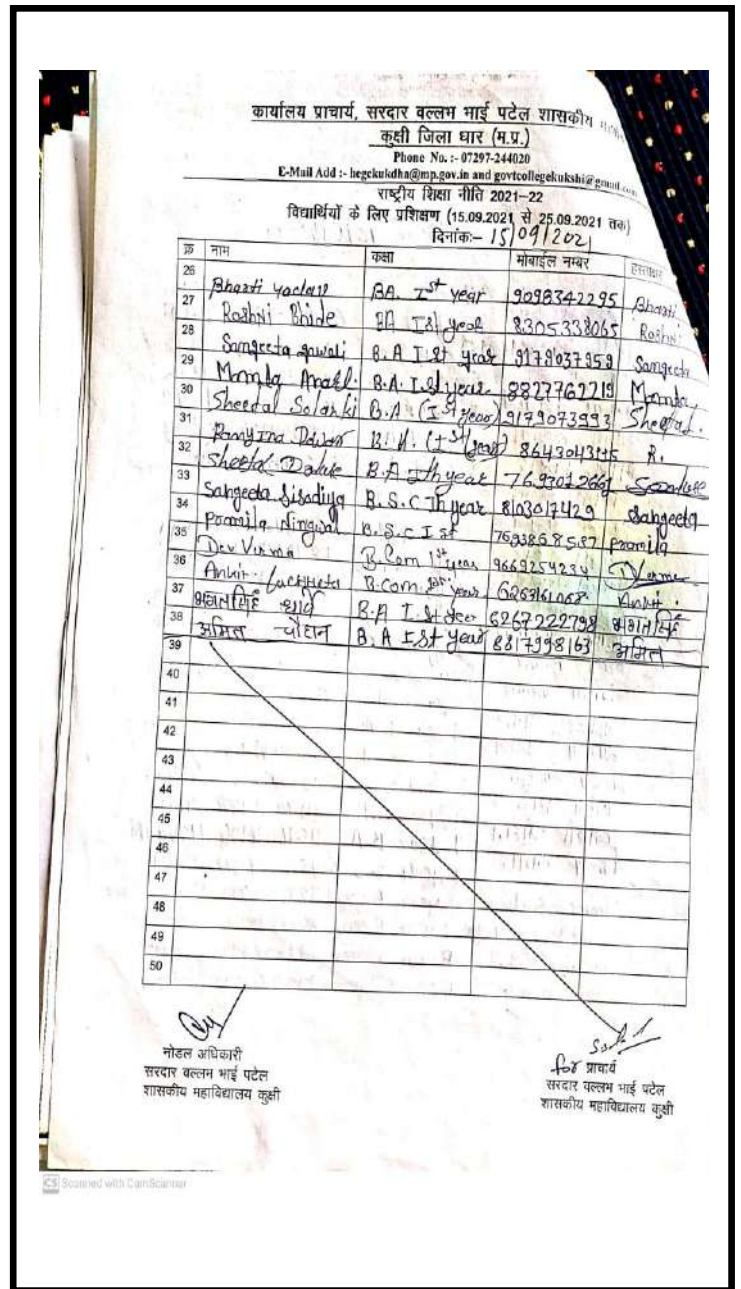 कार्यालय प्राचार्य, सरदार वल्लभ भाई पटेल शासकीय
कुक्षी जिला धार (म.प्र.)
Phone No. :- 07297-244020
E-Mail Add :- hegckukdha@mp.gov.in and govtcollegekukshi@gmail.com
राष्ट्रीय शिक्षा नीति 2021–22
विद्यार्थियों के लिए प्रशिक्षण (15.09.2021 से 25.09.2021 तक)
दिनांक:– 15/09/2021
क्र नाम कक्षा मोबाईल नम्बर हस्ताक्षर
26 Bharti Yadav BA. Ist year 9098342295 Bharti
27 Roshni Bhide BA Ist year 8305338065 Roshni
28 Sangeeta gawali B.A Ist year 9179037959 Sangeeta
29 Mamta B.A. Ist year 8827762219 Mamta
30 Sheetal Solanki B.A (Ist year) 9179073993 Sheetal.
31 B.A. (Ist year) R.
32 Sheetal B.A Ith year
33 Sangeeta Sisadiya B.S.C Ith year 8103017429 Sangeeta
34 Pramila Ningwal B.S.C Ist 7693868587 Pramila
35 Dev Verma B.Com 1st year 9669254234 DVerma
36 Ankit B.com. 1st year 6263161068 Ankit.
37 भगतसिंह B.A Ist 6267222798 भगतसिंह
38 अमित चौहान B.A Ist year 8817998163 अमित
39
40
41
42
43
44
45
46
47
48
49
50
नोडल अधिकारी
सरदार वल्लभ भाई पटेल
शासकीय महाविद्यालय कुक्षी
for प्राचार्य
सरदार वल्लभ भाई पटेल
शासकीय महाविद्यालय कुक्षी
CS Scanned with CamScanner